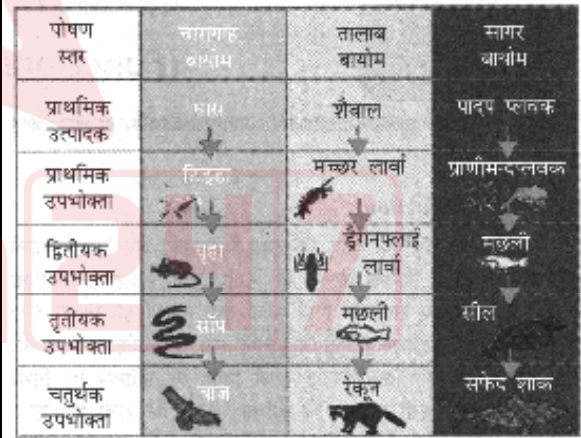 पोषण
स्तर
चारागाह
बायोम
तालाब
बायोम
सागर
बायोम
प्राथमिक
उत्पादक
घास
शैवाल
पादप प्लवक
प्राथमिक
उपभोक्ता
टिड्डा
मच्छर लार्वा
प्राणीमन्दप्लवक
द्वितीयक
उपभोक्ता
चूहा
ड्रैगनफ्लाई
लार्वा
मछली
तृतीयक
उपभोक्ता
साँप
मछली
सील
चतुर्थक
उपभोक्ता
बाज
रेकून
सफेद शार्क
247